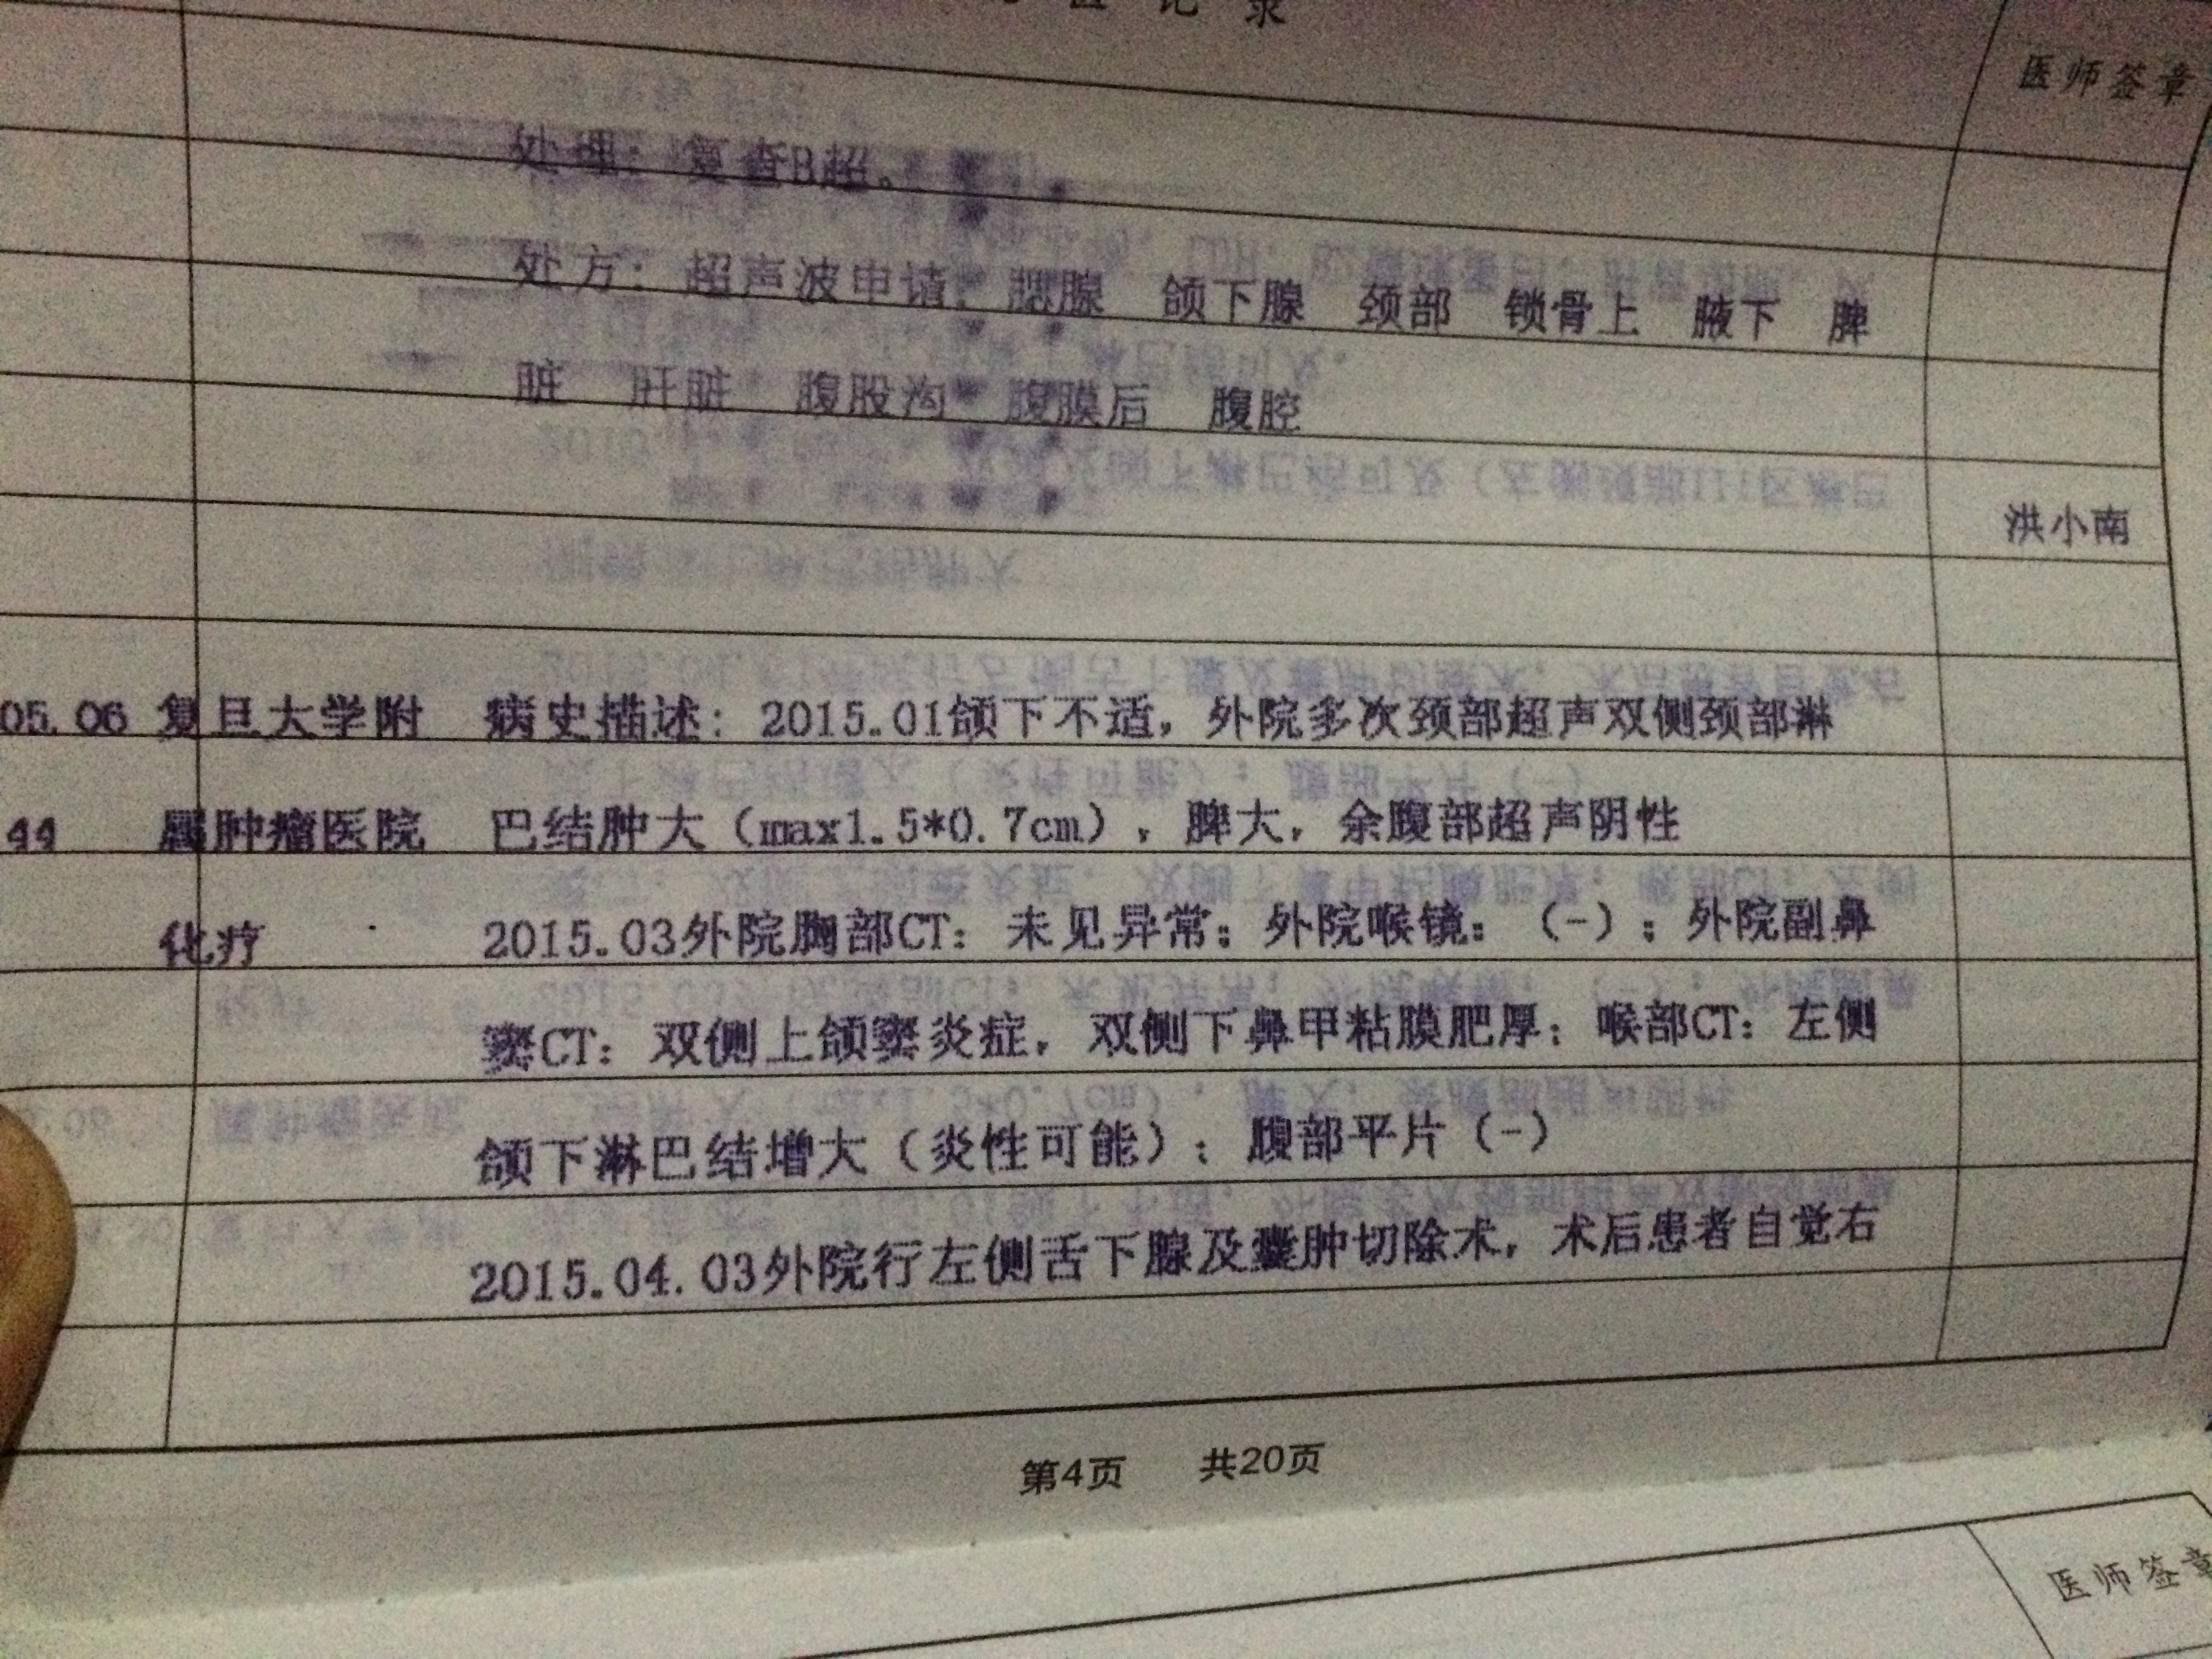 记 录
医师签章
处理：复查B超。
处方：超声波申请：腮腺 颌下腺 颈部 锁骨上 腋下 脾
脏 肝脏 腹股沟 腹膜后 腹腔
洪小南
05.06 复旦大学附 病史描述：2015.01颌下不适，外院多次颈部超声双侧颈部淋
44 属肿瘤医院 巴结肿大（max1.5*0.7cm），脾大，余腹部超声阴性
化疗 2015.03外院胸部CT：未见异常；外院喉镜：（-）；外院副鼻
窦CT：双侧上颌窦炎症，双侧下鼻甲粘膜肥厚；喉部CT：左侧
颌下淋巴结增大（炎性可能）；腹部平片（-）
2015.04.03外院行左侧舌下腺及囊肿切除术，术后患者自觉右
第4页 共20页
医师签章